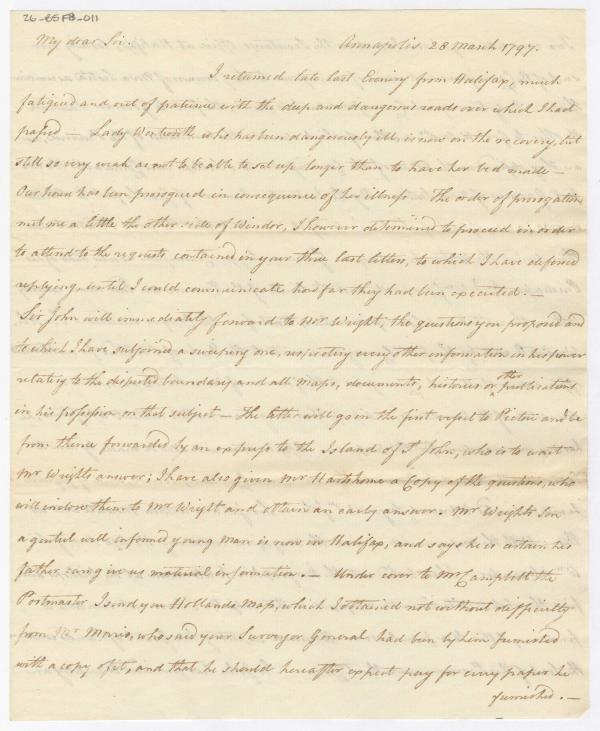 26-85F8-011
My dear Sir. Annapolis 28 March 1797.
I returned late last Evening from Halifax, much
fatigued and out of patience with the deep and dangerous roads over which I had
passed — Lady Wentworth who has been dangerously ill, is now on the recovery, but
still so very weak as not to be able to set up longer than to have her bed made —
Our house has been prorogued in consequence of her illness — The order of prorogation
met me a little the other side of Windsor, I however determined to proceed in order
to attend to the requests contained in your three last letters, to which I have defered
replying, until I could communicate how far they had been executed. —
Sir John will immediately forward to Mr Wright, the questions you proposed and
to which I have subjoined a sweeping one, respecting every other information in his power
relating to the disputed boundary and all Maps, documents, histories or other publications
in his possession on that subject — The letter will go in the first vessel to Pictou and be
from thence forwarded by an express to the Island of St John, who is to wait
Mr Wrights answer; I have also given Mr Hartshorne a Copy of the questions, who
will inclose them to Mr Wright and obtain an early answer. Mr Wrights Son
a genteel well informed young Man is now in Halifax, and says he is certain his
father can give us material information. — Under cover to Mr Campbell the
Postmaster I send you Hollands Map, which I obtained not without difficulty
from Mr Morris, who said your Surveyor General had been by him furnished
with a copy of it, and that he should hereafter expect pay for every paper he
furnished. —